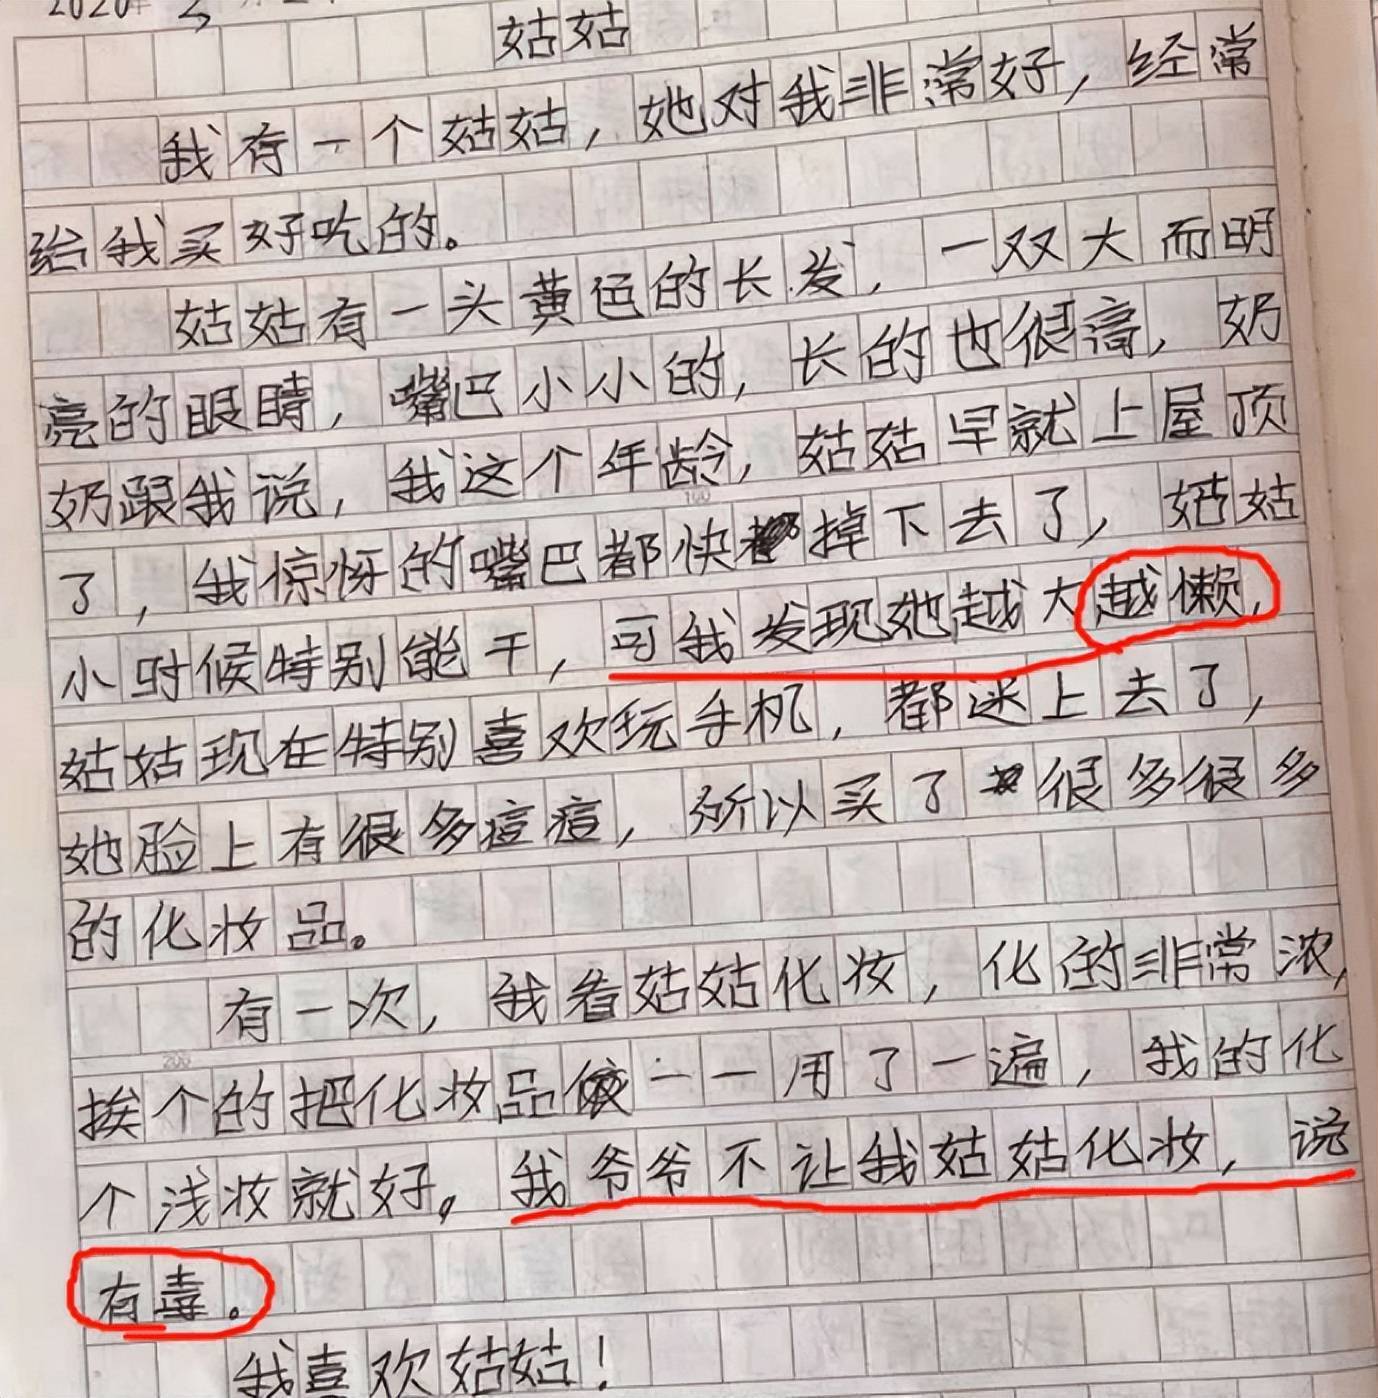 2020年
姑姑
我有一个姑姑，她对我非常好，经常
给我买好吃的。
姑姑有一头黄色的长发，一双大而明
亮的眼睛，嘴巴小小的，长的也很高，奶
奶跟我说，我这个年龄，姑姑早就上屋顶
100
了，我惊讶的嘴巴都快掉下去了，姑姑
小时候特别能干，可我发现她越大越懒，
姑姑现在特别喜欢玩手机，都迷上去了，
她脸上有很多痘痘，所以买了很多很多
的化妆品。
有一次，我看姑姑化妆，化的非常浓，
200
挨个的把化妆品一一用了一遍，我的化
个浅妆就好。我爷爷不让我姑姑化妆，说
有毒。
我喜欢姑姑！